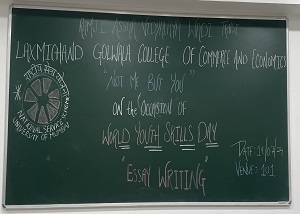 LAXMICHAND GOLWALA COLLEGE OF COMMERCE AND ECONOMICS
"NOT ME BUT YOU"
ON the OCCASION OF
WORLD YOUTH SKILLS DAY
"ESSAY WRITING"
राष्ट्रीय सेवा योजना
NATIONAL SERVICE SCHEME
UNIVERSITY OF MUMBAI
DATE:
VENUE: 101